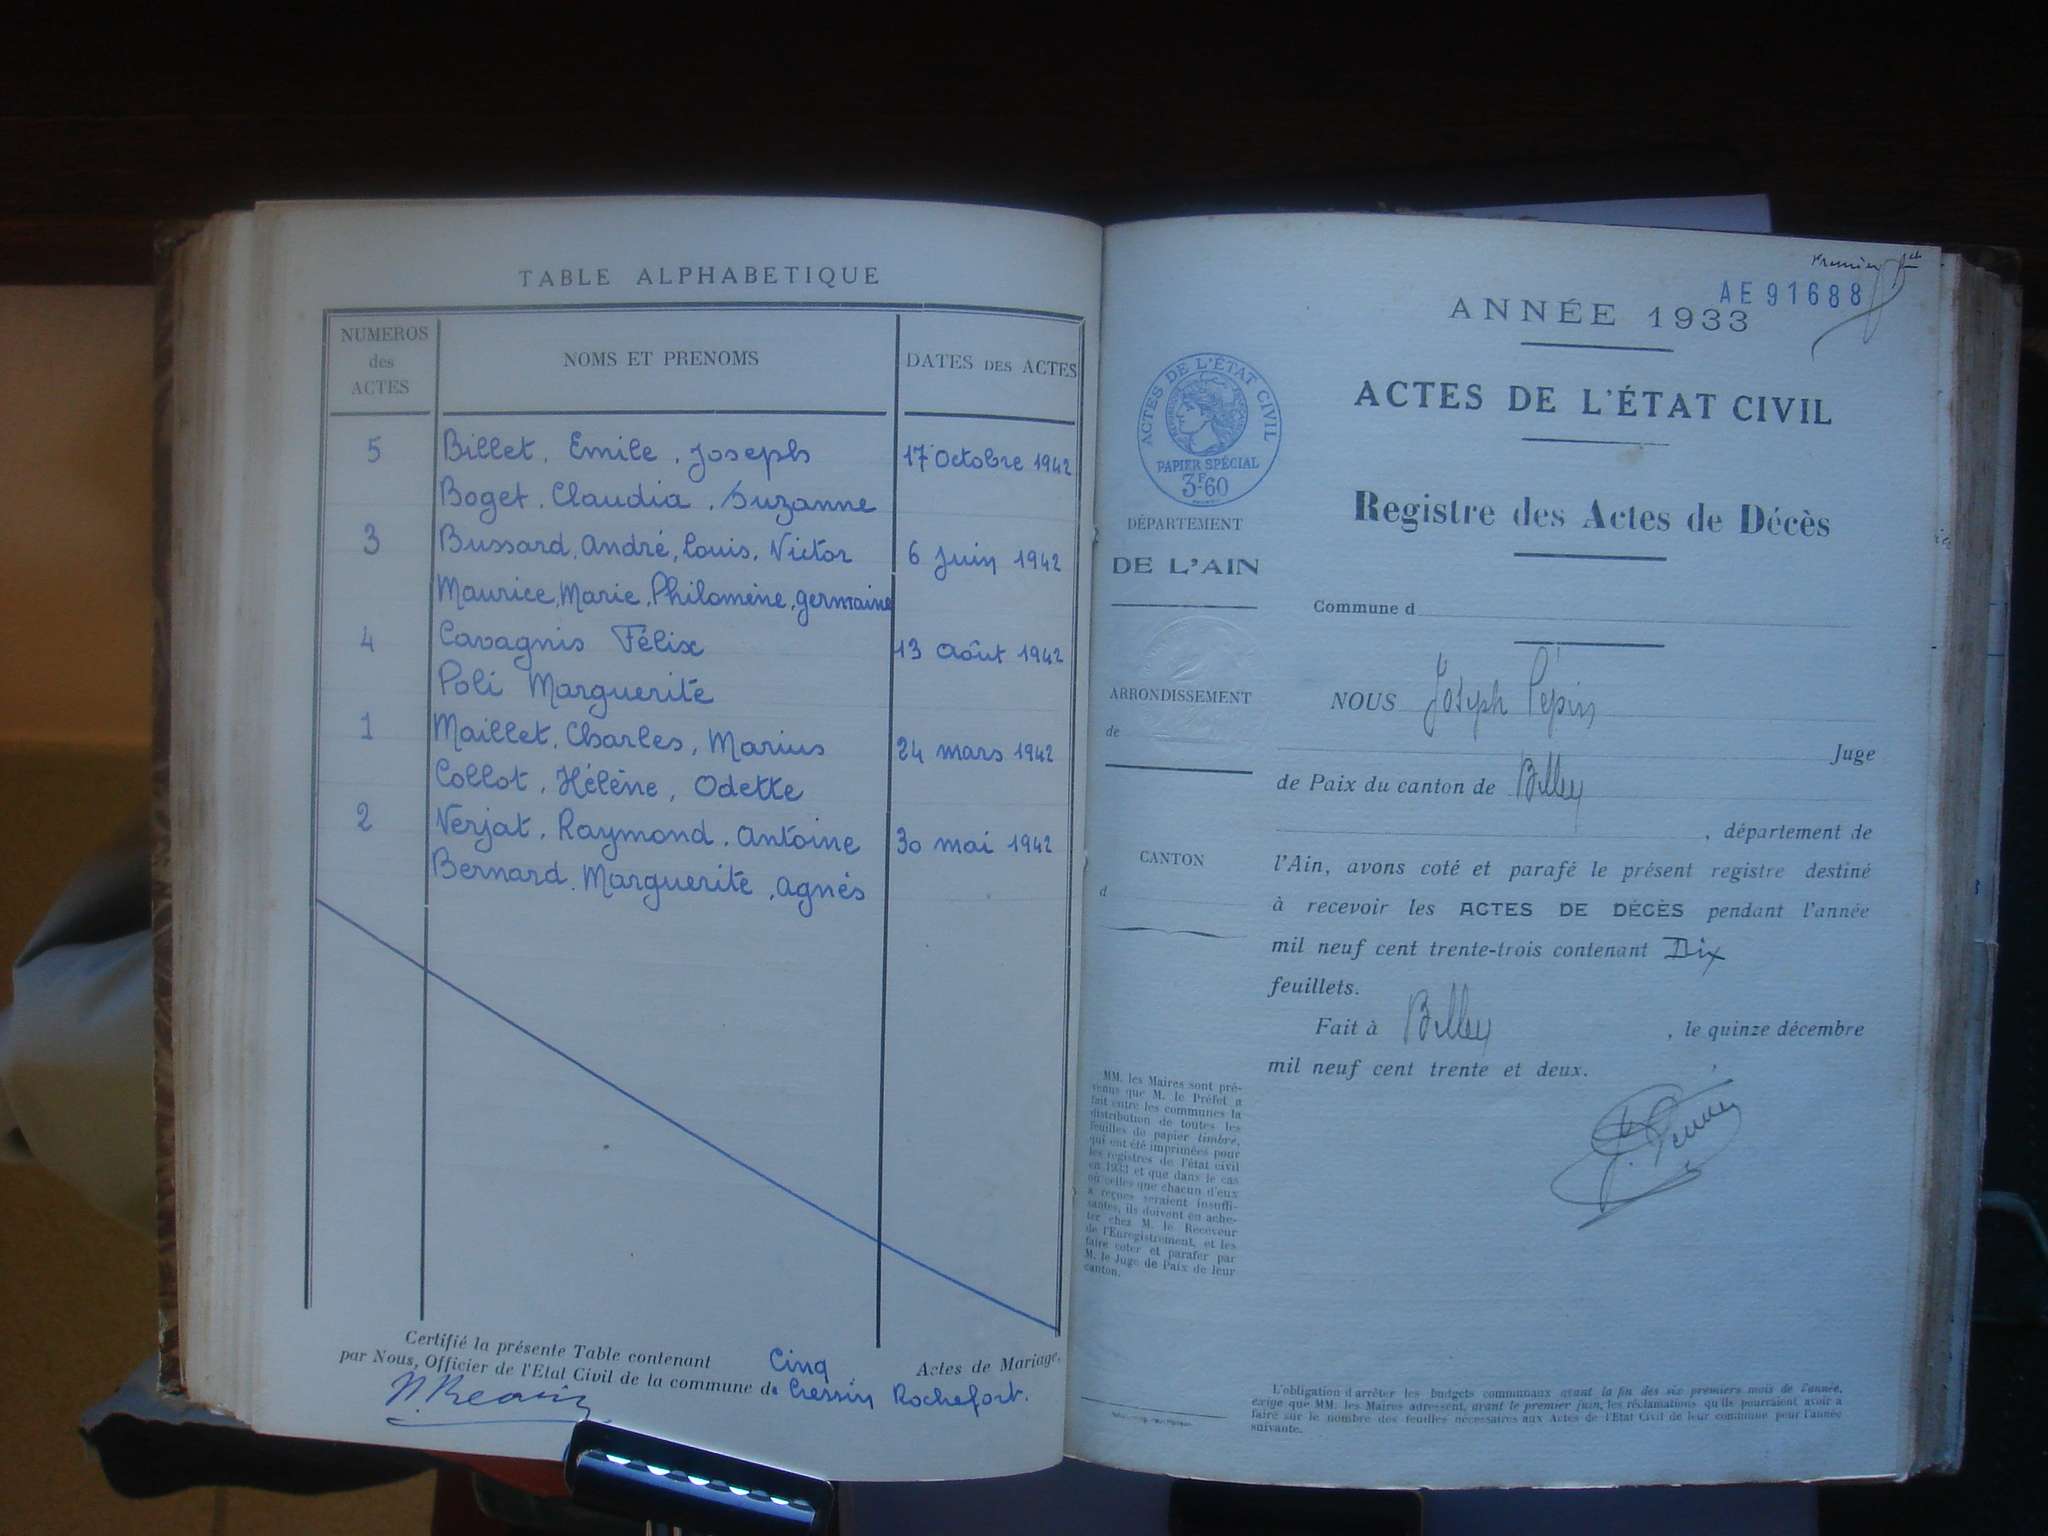 TABLE ALPHABETIQUE
NUMEROS des ACTES
NOMS ET PRENOMS
DATES DES ACTES
5 Billet, Emile, Joseph 17 Octobre 1942
Boget, Claudia, Suzanne
3 Bussard, André, Louis, Victor 6 Juin 1942
Maurice, Marie, Philomène, germaine
4 Cavagnis Félix 13 Août 1942
Poli Marguerite
1 Maillet, Charles, Marius 24 mars 1942
Collot, Hélène, Odette
2 Verjat, Raymond, Antoine 30 mai 1942
Bernard, Marguerite, agnès
Certifié la présente Table contenant Cinq Actes de Mariage,
par Nous, Officier de l'Etat Civil de la commune de Cressin Rochefort.
Premier
AE 91688
ANNÉE 1933
ACTES DE L'ÉTAT CIVIL
PAPIER SPÉCIAL
3F60
ACTES DE L'ÉTAT CIVIL
Registre des Actes de Décès
DÉPARTEMENT
DE L'AIN
Commune d
ARRONDISSEMENT
de
NOUS Joseph Pépin
Juge
de Paix du canton de Belley
, département de
CANTON
d
l'Ain, avons coté et parafé le présent registre destiné
à recevoir les ACTES DE DÉCÈS pendant l'année
mil neuf cent trente-trois contenant Dix
feuillets.
Fait à Belley , le quinze décembre
mil neuf cent trente et deux.
MM. les Maires sont pré-
venus que M. le Préfet a
fait entre les communes la
distribution de toutes les
feuilles de papier timbré,
qui ont été imprimées pour
les registres de l'état civil
en 1933 et que dans le cas
où celles que chacun d'eux
a reçues seraient insuffi-
santes, ils doivent en ache-
ter chez M. le Receveur
de l'Enregistrement, et les
faire coter et parafer par
M. le Juge de Paix de leur
canton.
L'obligation d'arrêter les budgets communaux avant la fin des six premiers mois de l'année,
exige que MM. les Maires adressent, avant le premier juin, les réclamations qu'ils pourraient avoir à
faire sur le nombre des feuilles nécessaires aux Actes de l'Etat Civil de leur commune pour l'année
suivante.